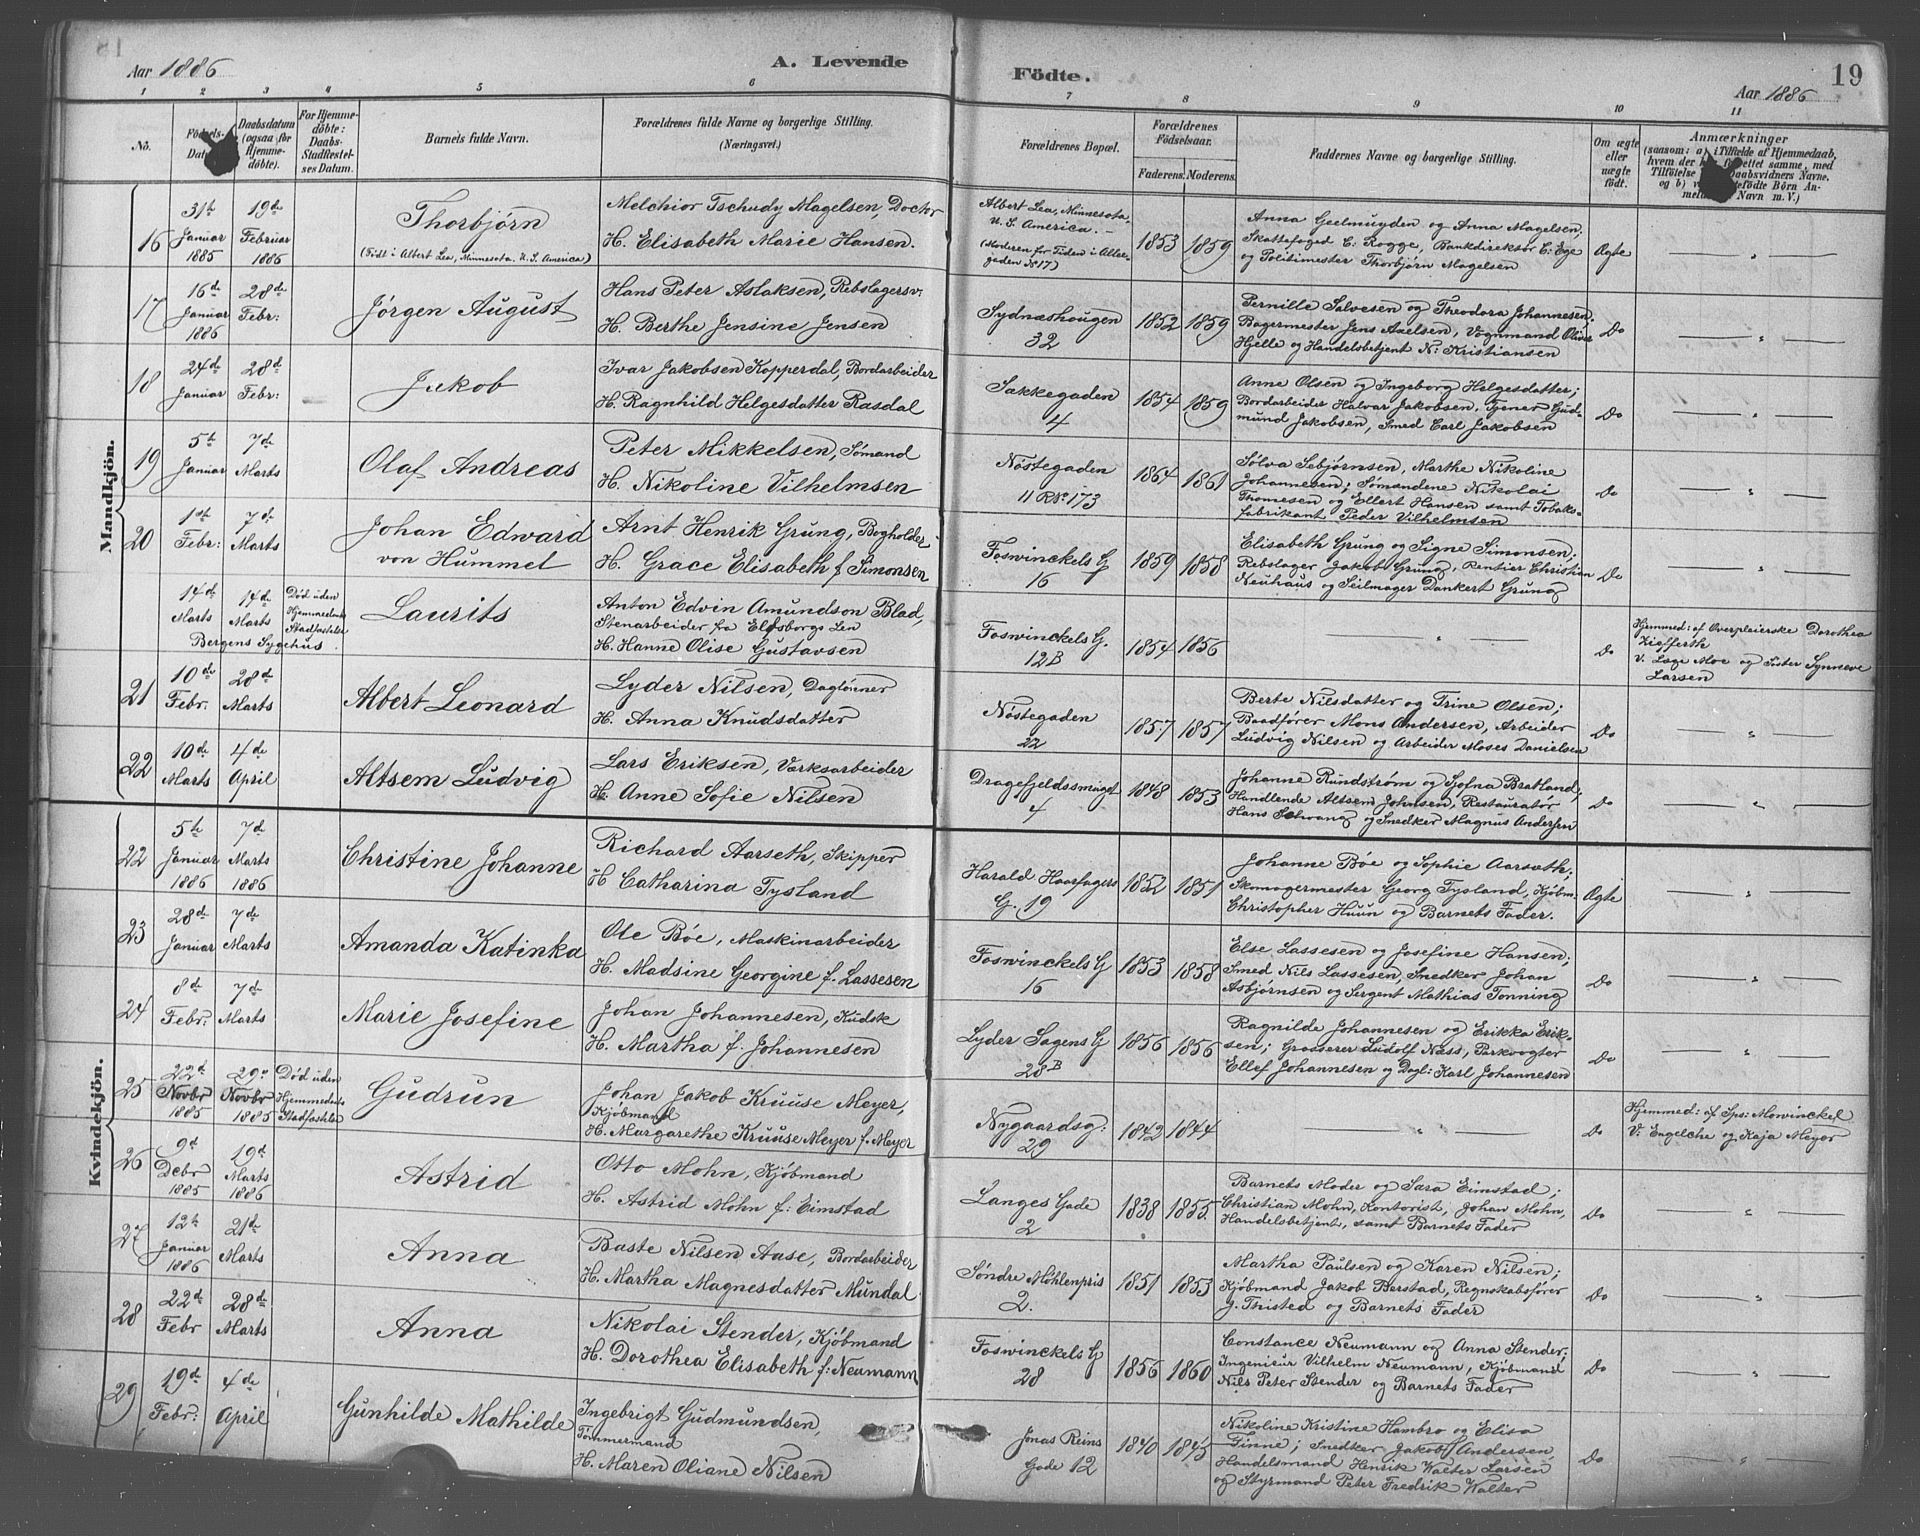 Aar 1886
A. Levende
Födte.
Aar 1886
19
1 2 3 4 5 6 7 8 9 10 11
No.
Födsels-
Datum
Daabsdatum
(ogsaa for
Hjemme-
döbte).
For Hjemme-
döbte:
Daabs-
Stadfæstel-
ses Datum.
Barnets fulde Navn.
Forældrenes fulde Navne og borgerlige Stilling.
(Næringsvei.)
Forældrenes Bopæl.
Forældrenes
Födselsaar.
Faderens. Moderens.
Faddernes Navne og borgerlige Stilling.
Om ægte
eller
uægte
födt.
Anmærkninger
(saasom: a) i Tilfælde af Hjemmedaab,
hvem der har forrettet samme, med
Tilföielse af Daabsvidners Navne.
og b) ved dødfødte Börn An-
melderens Navn m. V.)
Mandkjön.
16
31te Januar 1885
19de Februar 1886
Thorbjörn
(Født i Albert Lea, Minnesota. U. S. America)
Melchior Tschudy Magelsen, Doctor
H. Elisabeth Marie Hansen.
Albert Lea, Minnesota,
U. S. America. –
(Moderen for Tiden i Alle-
gaden No 17)
1853 1859
Anna Geelmuyden og Anna Magelsen,
Skattefoged C. Rogge, Bankdirektör C. Ege
og Politimester Thorbjörn Magelsen
Ægte
17
16de Januar 1886
28de Febr:
Jörgen August
Hans Peter Aslaksen, Rebslagersv:
H. Berthe Jensine Jensen
Sydnæshougen
32
1852 1859
Pernille Salvesen og Theodora Johannesen;
Bagermester Jens Axelsen, Vognmand Oliver
Hjelle og Handelsbetjent N: Kristiansen
Do
18
24de Januar
28d Febr:
Jakob
Ivar Jakobsen Kopperdal, Bordarbeider
H. Ragnhild Helgesdatter Rasdal
Sækkegaden
4
1854 1859
Anne Olsen og Ingeborg Helgesdatter;
Bordarbeider Halvar Jakobsen, Tjener Gud-
mund Jakobsen, Smed Carl Jakobsen
Do
19
5te Januar
7de Marts
Olaf Andreas
Peter Mikkelsen, Sömand
H. Nikoline Vilhelmsen
Nöstegaden
11 R.No 173
1864 1861
Solva Sebjörnsen, Marthe Nikoline
Johannesen; Sömændene Nikolai
Thomesen og Ellert Hansen samt Tobaks-
fabrikant Peder Vilhelmsen
Do
20
1ste Febr:
7de Marts
Johan Edward
von Hummel
Arnt Henrik Grung, Bogholder
H. Grace Elisabeth f. Simonsen
Foswinckels G
16
1859 1858
Elisabeth Grung og Signe Simonsen;
Rebslager Jakob Grung, Rentier Christian
Neuhaus og Seilmager Dankert Grung
Do
14de Marts
14de Marts
Død uden
Hjemmedaabs
Stadfæstelse
Bergens Sygehus.
Laurits
Anton Edvin Amundson Blad,
Stenarbeider fra Elfsborgs Len
H. Hanne Olise Gustavsen
Foswinckels G.
12B
1854 1856
Do
Hjemmed: af Overpleierske Dorothea
Ziefferth
V. Læge Moe og Søster Synneve
Larsen
21
10de Febr.
28de Marts
Albert Leonard
Lyder Nilsen, Daglönner
H. Anna Knudsdatter
Nöstegaden
22
1857 1857
Berte Nilsdatter og Trine Olsen;
Baadförer Mons Andersen, Arbeider
Ludvig Nilsen og Arbeider Moses Danielsen
Do
22
10de Marts
4de April
Altsem Ludvig
Lars Eriksen, Værksarbeider
H. Anne Sofie Nilsen
Dragefjeldssmuget
4
1848 1853
Johanne Rundström og Sjofna Bratland;
Handlende Altsem Johnsen, Restauratör
Hans Schwang og Snedker Magnus Andersen
Do
Kvindekjön.
22
5te Januar 1886
7de Marts 1886
Christine Johanne
Richard Aarseth, Skipper
H Catharina Tysland
Harald Haarfagers
G. 19
1852 1851
Johanne Böe og Sophie Aarsæth;
Skomagermester Georg Tysland, Kjöbm.
Christopher Huun og Barnets Fader.
Ægte
23
28de Januar
7de Marts
Amanda Katinka
Ole Böe, Maskinarbeider
H. Madsine Georgine f. Lassesen
Foswinckels G
16
1853 1858
Else Lassesen og Josefine Hansen;
Smed Nils Lassesen, Snedker Johan
Asbjörnsen og Sergent Mathias Tonning
Do
24
8de Febr:
7de Marts
Marie Josefine
Johan Johannesen, Kudsk
H. Martha f. Johannesen
Lyder Sagens G
28B
1856 1856
Ragnilde Johannesen og Erikka Erik-
sen; Grosserer Ludolf Næss, Parkvogter
Ellef Johannesen og Dagl: Karl Johannesen
Do
25
22d Novbr 1885
29de Novbr 1885
Død uden
Hjemmedaabs
Stadfæstelse
Gudrun
Johan Jakob Kruuse Meyer,
Kjöbmand
H. Margarethe Kruuse Meyer f. Meyer
Nygaardsg.
29
1842 1844
Do
Hjemmed: af Spr: Mowinckel
V. Engelche og Kaja Meyer
26
9d Debr 1885
19d Marts 1886
Astrid
Otto Mohn, Kjöbmand
H. Astrid Mohn f: Eimstad
Langes Gade
2
1838 1855
Barnets Moder og Sara Eimstad;
Christian Mohn, Kontorist, Johan Mohn,
Handelsbetjent, samt Barnets Fader
Do
27
12te Januar 1886
21de Marts
Anna
Baste Nilsen Aase, Bordarbeider
H. Martha Magnesdatter Mundal
Söndre Möhlenpris
2.
1851 1853
Martha Paulsen og Karen Nilsen;
Kjöbmand Jakob Berstad, Regnskabsförer
J. Thisted og Barnets Fader
Do
28
22de Febr
28de Marts
Anna
Nikolai Stender, Kjöbmand
H. Dorothea Elisabeth f: Neumann
Foswinckels G
28
1856 1860
Constance Neumann og Anna Stender;
Ingenieur Vilhelm Neumann, Kjöbmand
Nils Peter Stender og Barnets Fader
Do
29
19de Febr:
4de April
Gunhilde Mathilde
Ingebrigt Gudmundsen,
Tömmermand
H. Maren Oliane Nilsen
Jonas Reins
Gade 12
1840 1845
Nikoline Kristine Hambro og Elisa
Finne; Snedker Jakob Andersen,
Handelsmand Henrik Walter Larsen
og Styrmand Peter Fredrik Walter
Do